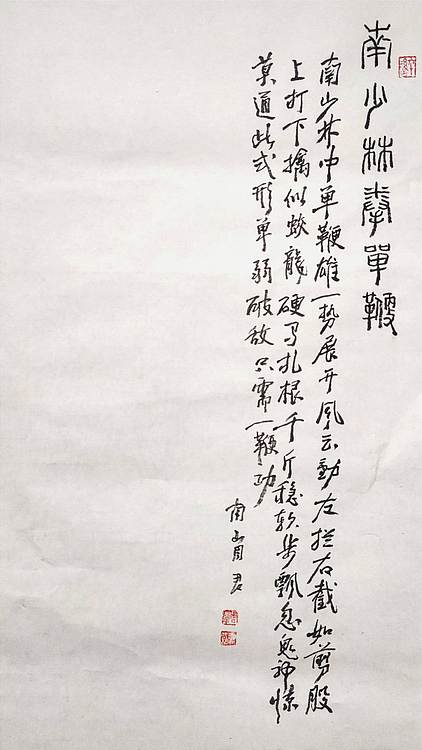 南少林拳單鞭
南少林中单鞭雄一势展开风云動左拦右截如剪股
上打下擒似蛟龍硬马扎根千斤稳软步飘忽鬼神
莫道此式形单弱破敌只需一鞭功
南
君